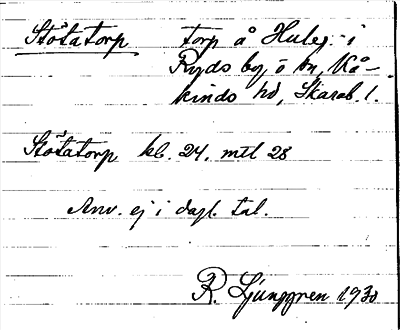 Stötatorp torp å Huleg. i
Ryds by o sn, Kå-
kinds hd, Skarab. l.
Stötatorp kb. 24. mtl 28
Anv. ej i dagl. tal.
R. Ljunggren 1930